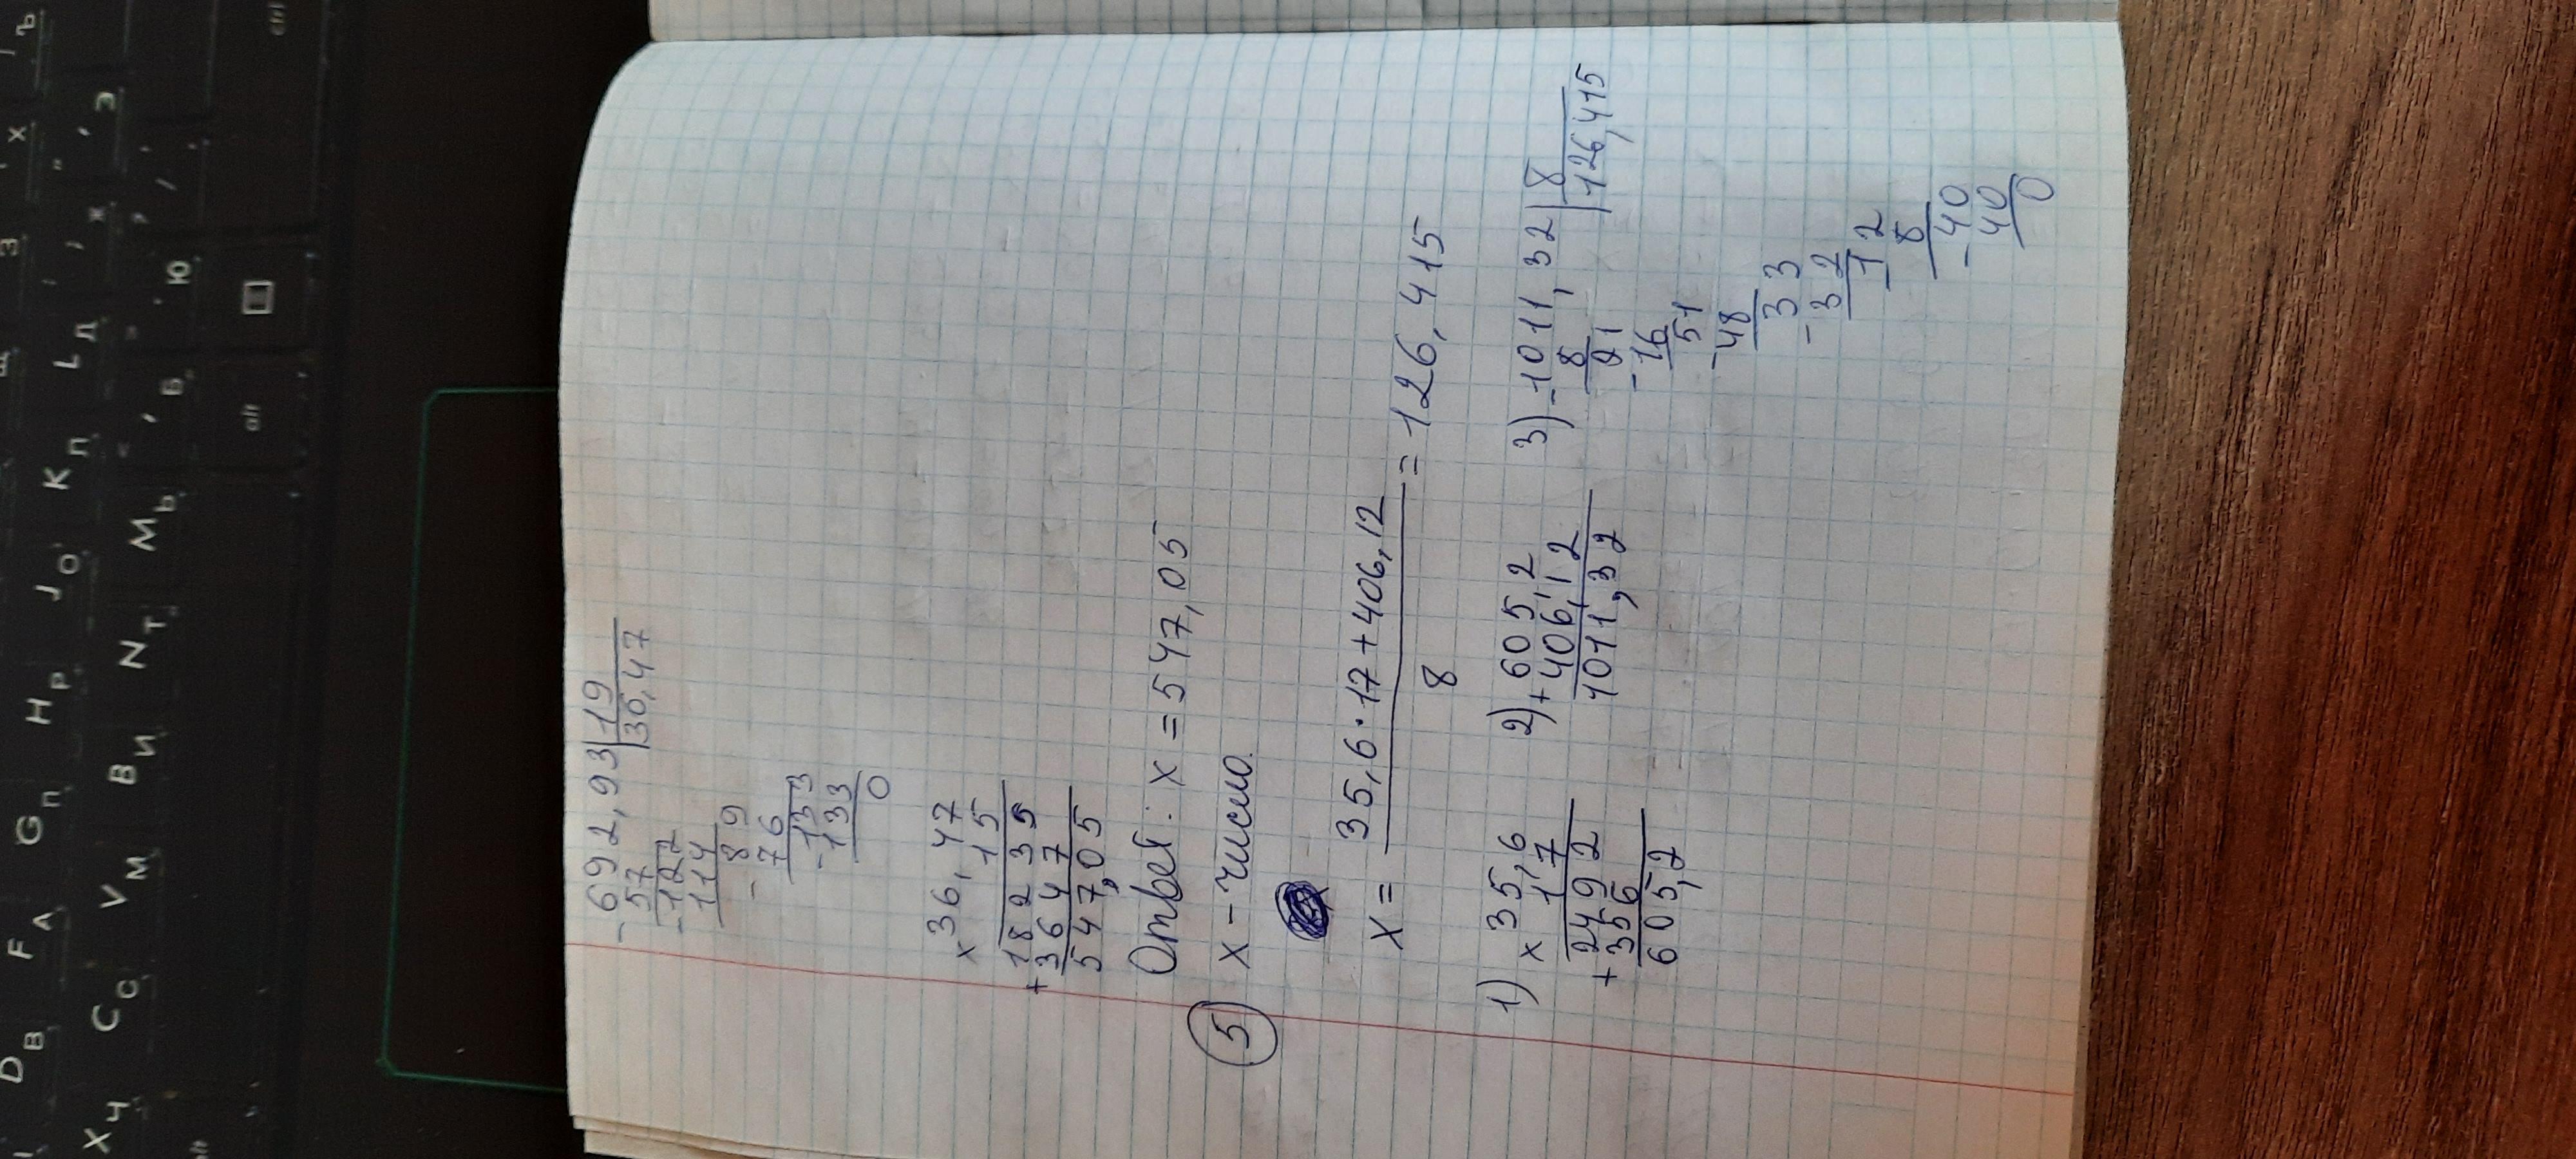 - 692,93 | 19
57 | 36,47
- 122
114
- 89
76
- 133
133
0
× 36,47
15
18235
+ 3647
547,05
Ответ: x = 547,05
5 x - число
x = 35,6 · 17 + 406,12 / 8 = 126,415
1) × 35,6
17
2492
+ 356
605,2
2) + 605,2
406,12
1011,32
3) - 1011,32 | 8
8 | 126,415
21
- 16
51
- 48
33
- 32
- 12
8
- 40
40
0
D В F А G П H Р J О K Л L Д
X Ч C С V М B И N Т M Ь Б Ю
alt
ctrl